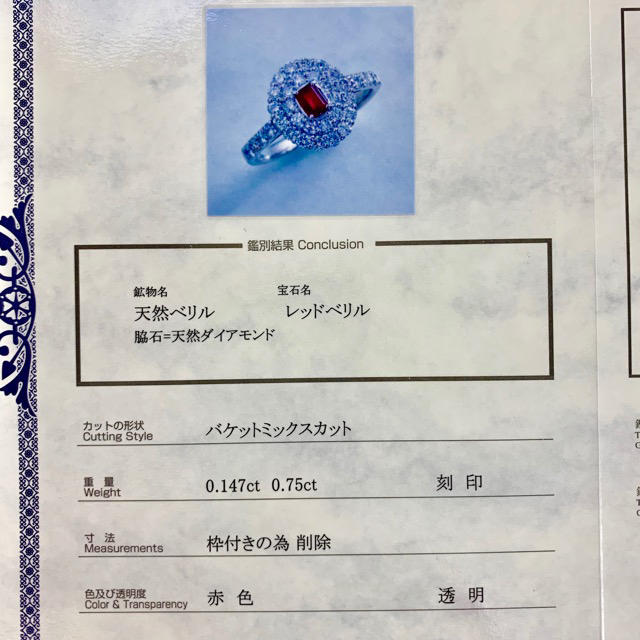 鑑別結果 Conclusion
鉱物名 宝石名
天然ベリル レッドベリル
脇石=天然ダイアモンド
カットの形状 バケットミックスカット
Cutting Style
重量 0.147ct 0.75ct 刻印
Weight
寸法 枠付きの為 削除
Measurements
色及び透明度 赤色 透明
Color & Transparency